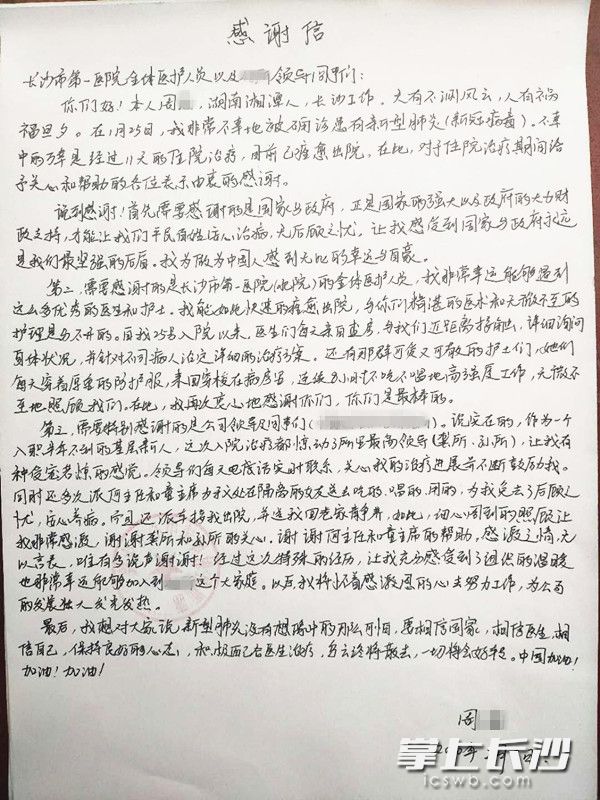 感谢信
长沙市第一医院全体医护人员以及领导同事们：
你们好！本人周，湖南湘潭人，长沙工作。天有不测风云，人有祸
福旦夕。在1月25日，我非常不幸地被确诊患有新型肺炎（新冠病毒）。不幸
中的万幸是经过11天的住院治疗，目前已痊愈出院。在此，对于住院治疗期间给
予关心和帮助的各位表示由衷的感谢。
说到感谢！首先需要感谢的是国家与政府，正是国家的强大以及政府的大力财
政支持，才能让我们平民百姓安心治病，无后顾之忧。让我感受到国家与政府永远
是我们最坚强的后盾。我为做为中国人感到无比的幸运与自豪。
第二，需要感谢的是长沙市第一医院（北院）的全体医护人员，我非常幸运能够遇到
这么多优秀的医生和护士。我能如此快速的痊愈出院，与你们精湛的医术和无微不至的
护理是分不开的。自我25号入院以来，医生们每天亲自查房，与我们近距离接触，详细询问
身体状况，并针对不同病人治定详细的治疗方案。还有那群可爱又可敬的护士们，她们
每天穿着厚重的防护服，来回穿梭在病房里，连续8小时不吃不喝地高强度工作，无微不
至地照顾我们。在此，我再次衷心地感谢你们，你们是最棒的。
第三，需要特别感谢的是公司领导及同事们（）。说实在的，作为一个
入职半年不到的基层新人，这次入院治疗都惊动了所里最高领导（梁所、孙所），让我有
种受宠若惊的感觉。领导们每天电话定时联系，关心我的治疗进展并不断鼓励我。
同时还多次派何主任和章主席为我处在隔离的女友送去吃的、喝的、用的，为我免去了后顾之
忧，安心养病。今日还派车接我出院，并送我回老家静养，如此细心周到的照顾让
我非常感激，谢谢梁所和孙所的关心。谢谢何主任和章主席的帮助，感激之情，无
以言表，唯有多说声谢谢！经过这次特殊的经历，让我充分感受到了组织的温暖
也非常幸运能够加入到这个大家庭。以后我将怀着感激感恩的心去努力工作，为公司
的发展壮大发光发热。
最后，我想对大家说，新型肺炎没有想象中的那么可怕，要相信国家，相信医生，相
信自己，保持良好的心态，积极配合医生治疗，乌云终将散去，一切将会好起。中国加油！
加油！加油！
周
2020年2月
掌上长沙
icswb.com